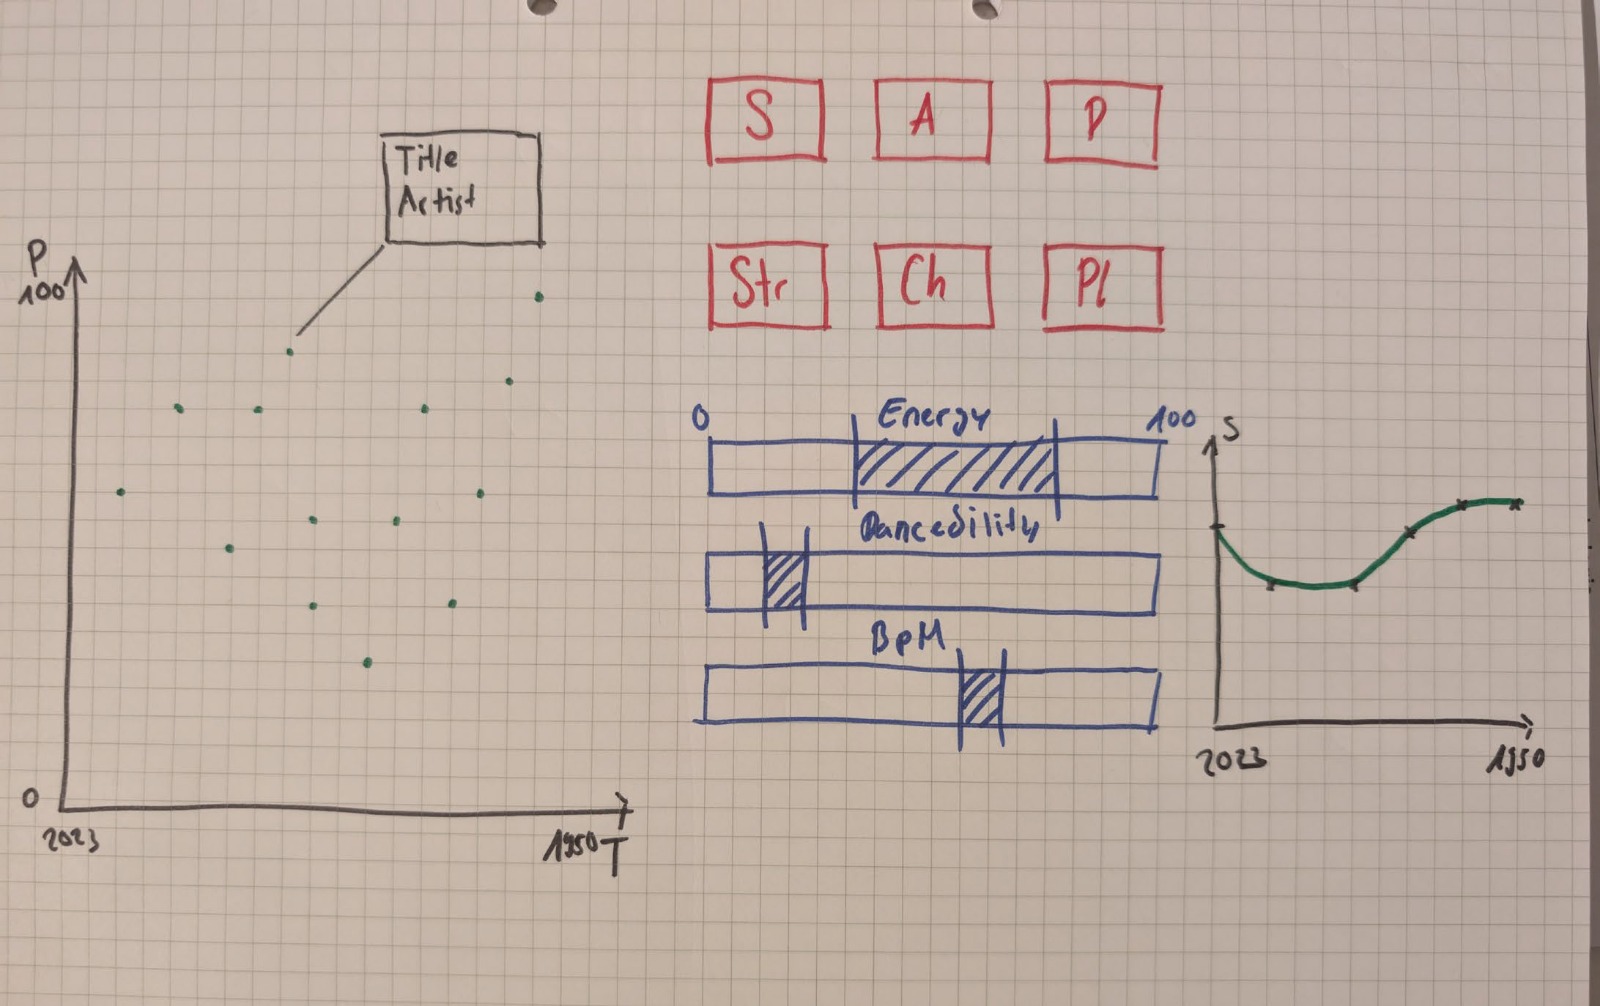 P
100
Title
Artist
0
2023
1950 T
S
A
P
Str
Ch
Pl
0
Energy
100
Dancedility
BpM
S
2023
1950